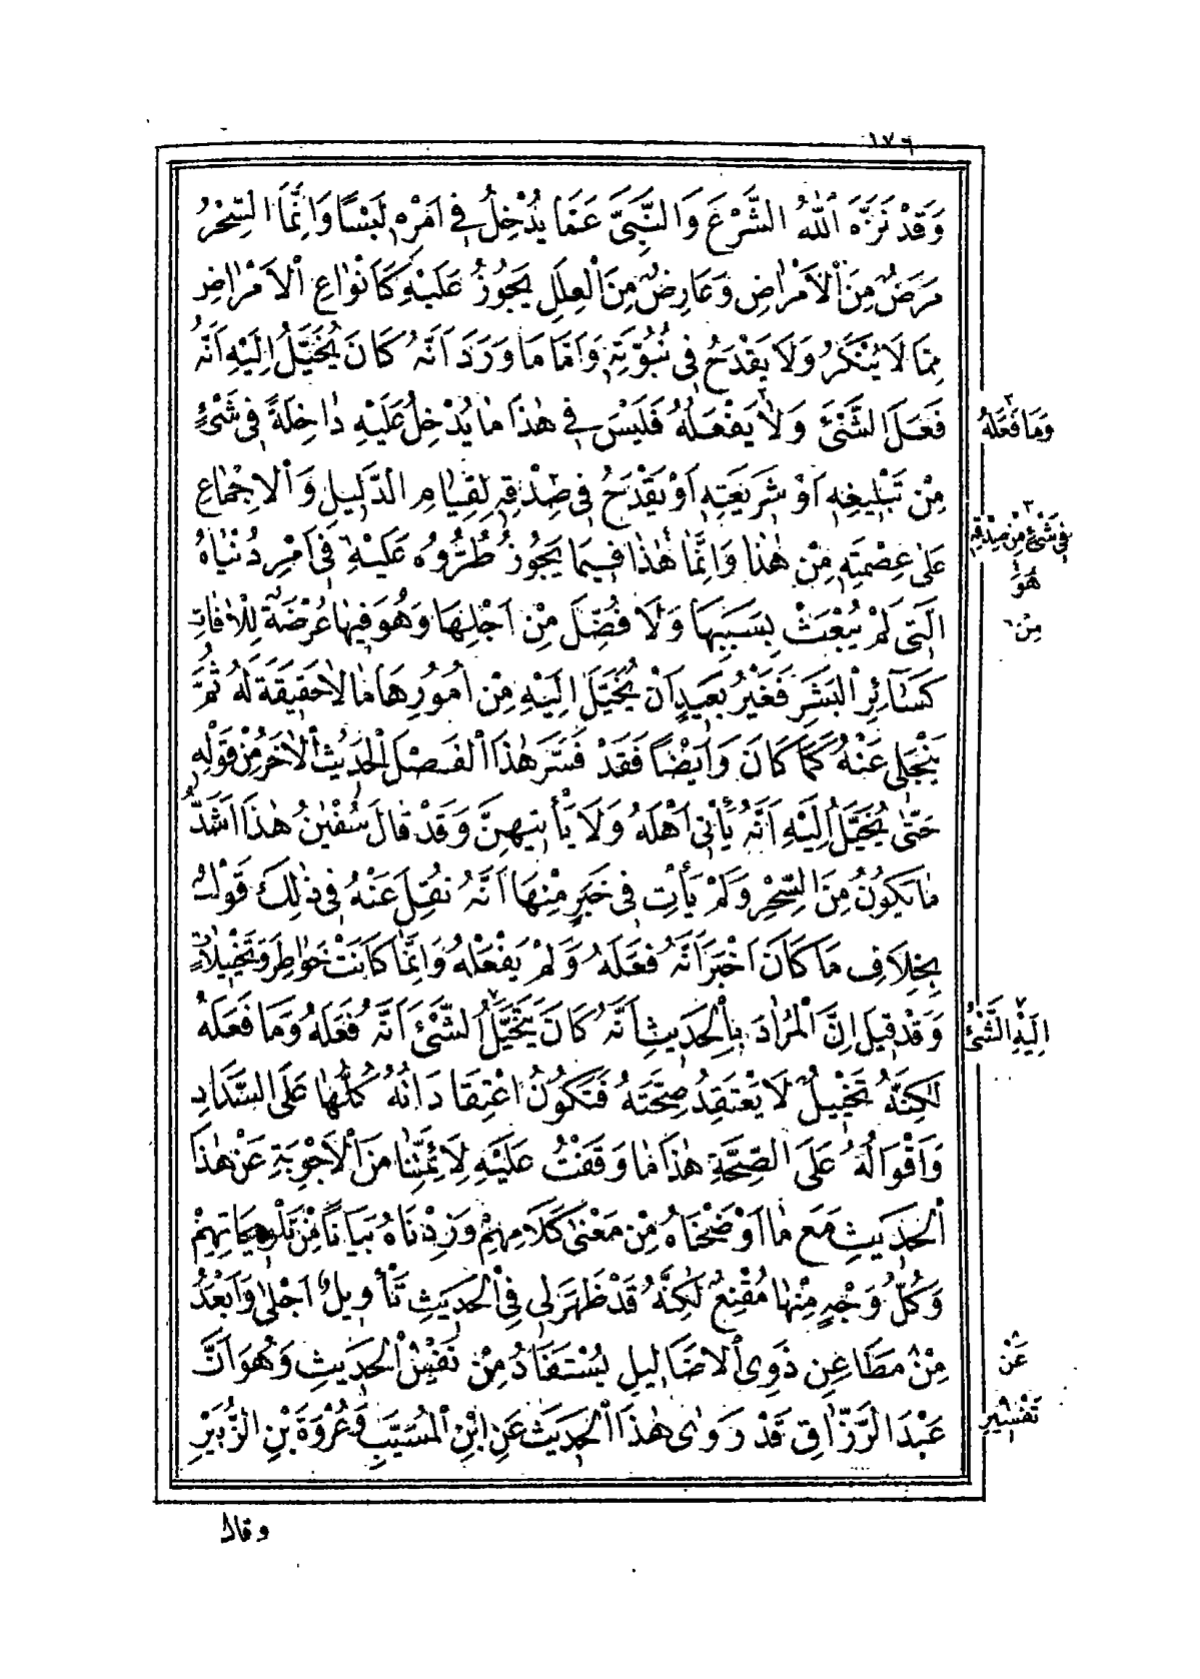 ١٧٦
وَقَدْ نَزَّهَ اللهُ الشَّرْعَ وَالنَّبِيَّ عَمَّا يُدْخِلُ فِي اَمْرِهِ لَبْسًا وَاِنَّمَا السِّحْرُ
مَرَضٌ مِنَ الْاَمْرَاضِ وَعَارِضٌ مِنَ الْعِلَلِ يَجُوزُ عَلَيْهِ كَاَنْوَاعِ الْاَمْرَاضِ
مِمَّا لَا يُنْكَرُ وَلَا يَقْدَحُ فِي نُبُوَّتِهِ وَاَمَّا مَا وَرَدَ اَنَّهُ كَانَ يُخَيَّلُ اِلَيْهِ اَنَّهُ
فَعَلَ الشَّيْءَ وَلَا يَفْعَلُهُ فَلَيْسَ فِي هٰذَا مَا يُدْخِلُ عَلَيْهِ دَاخِلَةً فِي شَيْءٍ
٢ وَمَا فَعَلَهُ
مِنْ تَبْلِيغِهِ اَوْ شَرِيعَتِهِ اَوْ يَقْدَحُ فِي صِدْقِهِ لِقِيَامِ الدَّلِيلِ وَالْاِجْمَاعِ
٣ فِي شَيْءٍ مِنْ صِدْقِهِ
عَلَى عِصْمَتِهِ مِنْ هٰذَا وَاِنَّمَا هٰذَا فِيمَا يَجُوزُ طُرُوُّهُ عَلَيْهِ فِي اَمْرِ دُنْيَاهُ
هُوَ
الَّتِي لَمْ يُبْعَثْ بِسَبَبِهَا وَلَا فُضِّلَ مِنْ اَجْلِهَا وَهُوَ فِيهَا عُرْضَةٌ لِلْاٰفَاتِ
٦ مِنْ
كَسَائِرِ الْبَشَرِ فَغَيْرُ بَعِيدٍ اَنْ يُخَيَّلَ اِلَيْهِ مِنْ اُمُورِهَا مَا لَا حَقِيقَةَ لَهُ ثُمَّ
يَنْجَلِي عَنْهُ كَمَا كَانَ وَاَيْضًا فَقَدْ فَسَّرَ هٰذَا الْفَصْلَ الْحَدِيثُ الْاٰخَرُ مِنْ قَوْلِهِ
حَتَّى يُخَيَّلَ اِلَيْهِ اَنَّهُ يَأْتِي اَهْلَهُ وَلَا يَأْتِيهِنَّ وَقَدْ قَالَ سُفْيٰنُ هٰذَا اَشَدُّ
مَا يَكُونُ مِنَ السِّحْرِ وَلَمْ يَأْتِ فِي خَبَرٍ مِنْهَا اَنَّهُ نُقِلَ عَنْهُ فِي ذٰلِكَ قَوْلٌ
بِخِلَافِ مَا كَانَ اَخْبَرَ اَنَّهُ فَعَلَهُ وَلَمْ يَفْعَلْهُ وَاِنَّمَا كَانَتْ خَوَاطِرَ وَتَخْيِيلَاتٍ
وَقَدْ قِيلَ اِنَّ الْمُرَادَ بِالْحَدِيثِ اَنَّهُ كَانَ يَتَخَيَّلُ الشَّيْءَ اَنَّهُ فَعَلَهُ وَمَا فَعَلَهُ
٧ اِلَيْهِ الشَّيْءُ
لٰكِنَّهُ تَخْيِيلٌ لَا يَعْتَقِدُ صِحَّتَهُ فَتَكُونُ اعْتِقَادَاتُهُ كُلُّهَا عَلَى السَّدَادِ
وَاَقْوَالُهُ عَلَى الصِّحَّةِ هٰذَا مَا وَقَفْتُ عَلَيْهِ لِاَئِمَّتِنَا مِنَ الْاَجْوِبَةِ عَنْ هٰذَا
الْحَدِيثِ مَعَ مَا اَوْضَحْنَاهُ مِنْ مَعْنَى كَلَامِهِمْ وَزِدْنَاهُ بَيَانًا مِنْ تَلْوِيحَاتِهِمْ
وَكُلُّ وَجْهٍ مِنْهَا مُقْنِعٌ لٰكِنَّهُ قَدْ ظَهَرَ لِي فِي الْحَدِيثِ تَأْوِيلٌ اَجْلٰى وَاَبْعَدُ
مِنْ مَطَاعِنِ ذَوِي الْاَضَالِيلِ يُسْتَفَادُ مِنْ نَفْسِ الْحَدِيثِ وَهُوَ اَنَّ
٨ عَنْ
عَبْدَ الرَّزَّاقِ قَدْ رَوٰى هٰذَا الْحَدِيثَ عَنِ ابْنِ الْمُسَيَّبِ وَعُرْوَةَ بْنِ الزُّبَيْرِ
٩ تَفْسِيرِ
وقالا